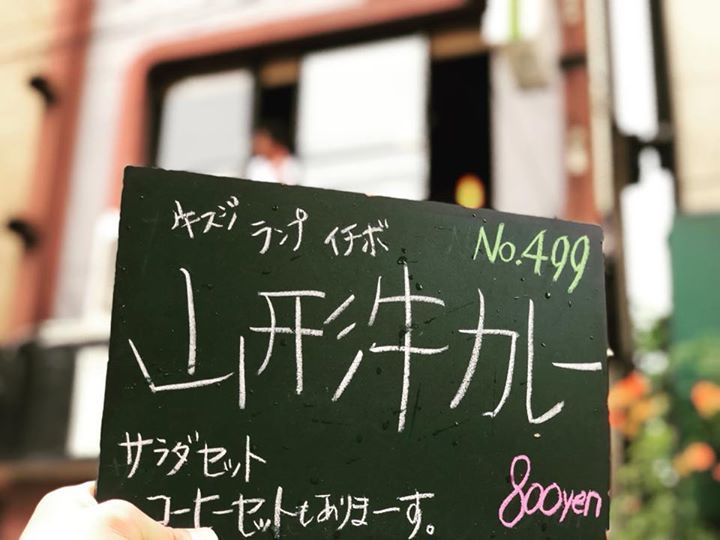 ウキスジ ランプ イチボ
No.499
山形牛カレー
サラダセット
コーヒーセットもありまーす。
800yen